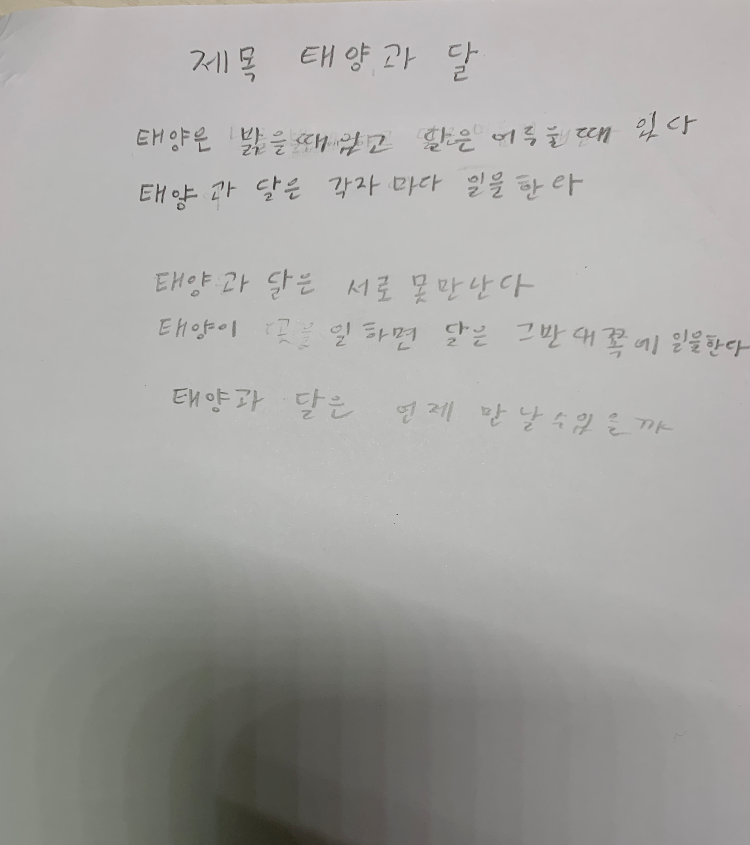 제목 태양과 달
태양은 밝을때 있고 달은 어두울때 있다
태양과 달은 각자마다 일을한다
태양과 달은 서로 못만난다
태양이 일하면 달은 그반대쪽에 일을한다
태양과 달은 언제 만날수있을까